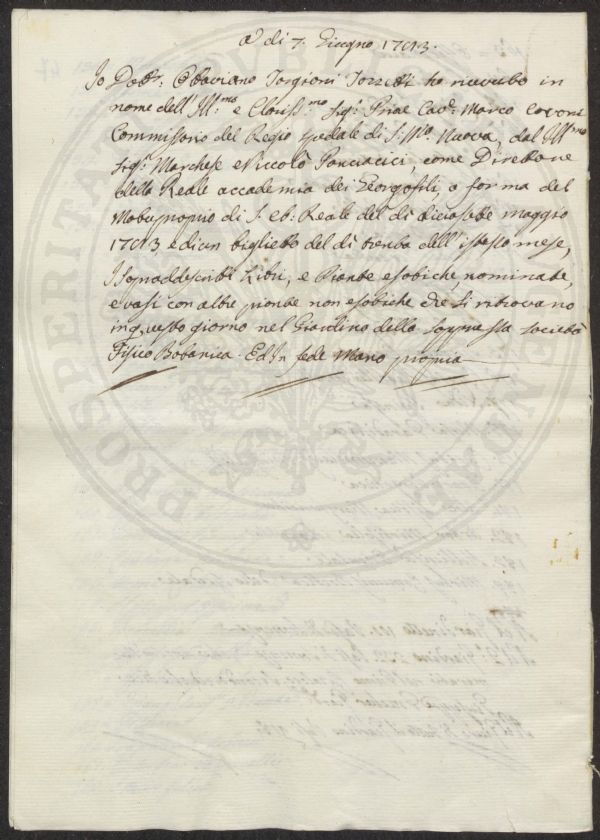 A dì 7. Giugno 1783.
Io Dott.r Ottaviano Targioni Tozzetti ho ricevuto in
nome dell' Ill.mo e Clariss.mo Sig.r Priore Cav.r Marco Covoni
Commissario del Regio spedale di S. M.a Nuova, dal Ill.mo
Sig.r Marchese Niccolò Panciatici, come Direttore
della Reale accademia dei Georgofili, a forma del
Motuproprio di S. A. Reale del dì diciasette maggio
1783, e di un biglietto del dì trenta dell' istesso mese,
I sopraddescritti Libri, e Piante esotiche, nominate,
e vasi con altre piante non esotiche che si ritrovano
in questo giorno nel Giardino della soppressa società
Fisico Botanica. Ed In fede Mano propria
PROSPERITATI PUBLICAE AUGENDAE